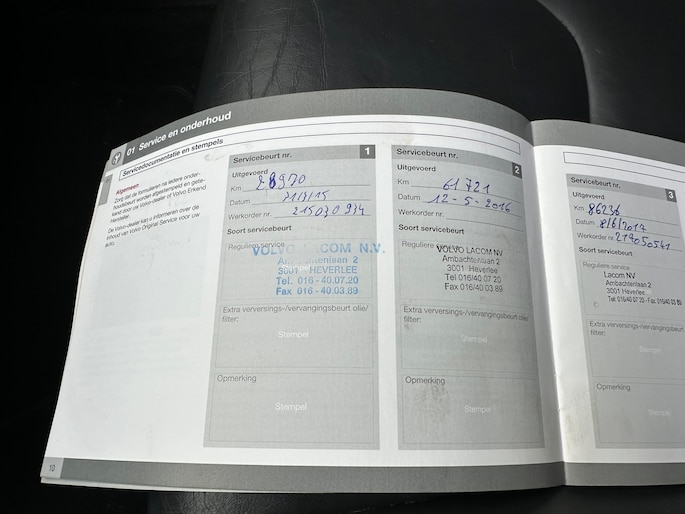 01 Service en onderhoud
Servicedocumentatie en stempels
Algemeen
Zorg dat de formulieren na iedere onder-
houdsbeurt worden afgestempeld en gete-
kend door uw Volvo-dealer of Volvo Erkend
Hersteller.
De Volvo-dealer kan u informeren over de
inhoud van Volvo Original Service voor uw
auto.
10
Servicebeurt nr. 1
Uitgevoerd
Km 28970
Datum
Werkorder nr. 215030934
Soort servicebeurt
Reguliere service
VOLVO LACOM N.V.
Ambachtenlaan 2
3001 HEVERLEE
Tel. 016 - 40.07.20
Fax 016 - 40.03.89
Extra verversings-/vervangingsbeurt olie/
filter:
Stempel
Opmerking
Stempel
Servicebeurt nr. 2
Uitgevoerd
Km 61721
Datum 12-5-2016
Werkorder nr.
Soort servicebeurt
Reguliere service
VOLVO LACOM NV
Ambachtenlaan 2
3001 HEVERLEE
Tel 016/40 07 20
Fax 016/40 03 89
Extra verversings-/vervangingsbeurt olie/
filter:
Stempel
Opmerking
Stempel
Servicebeurt nr. 3
Uitgevoerd
Km 86236
Datum 8/6/2017
Werkorder nr. 217050541
Soort servicebeurt
Reguliere service
Lacom NV
Ambachtenlaan 2
3001 Heverlee
Tel. 016/40 07 20 - Fax 016/40 03 89
Extra verversings-/vervangingsbeurt
filter:
Stempel
Opmerking
Stempel